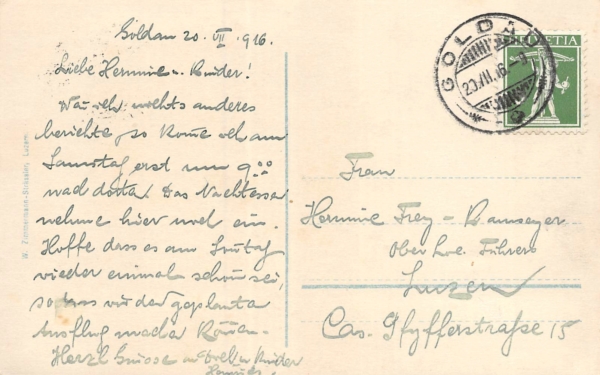 Goldau 20. VII. 916.
Liebe Hermine u. Kinder!
Wo ich nichts anderes
berichte, so komme ich am
Samstag erst um 9.00
nach dorten. Das Nachtessen
nehme hier noch ein.
Hoffe dass es am Sonntag
wieder einmal schön sei,
so dass wir den geplanten
Ausflug machen können.
Herzl Grüsse an Kinder
GOLDAU
20.VII.16
HELVETIA
Frau
Hermine Frey-Ramseyer
Oberl. Führers
Luzern
Cas. Pfyfferstraße 15
W. Zimmermann-Strässler, Luzern